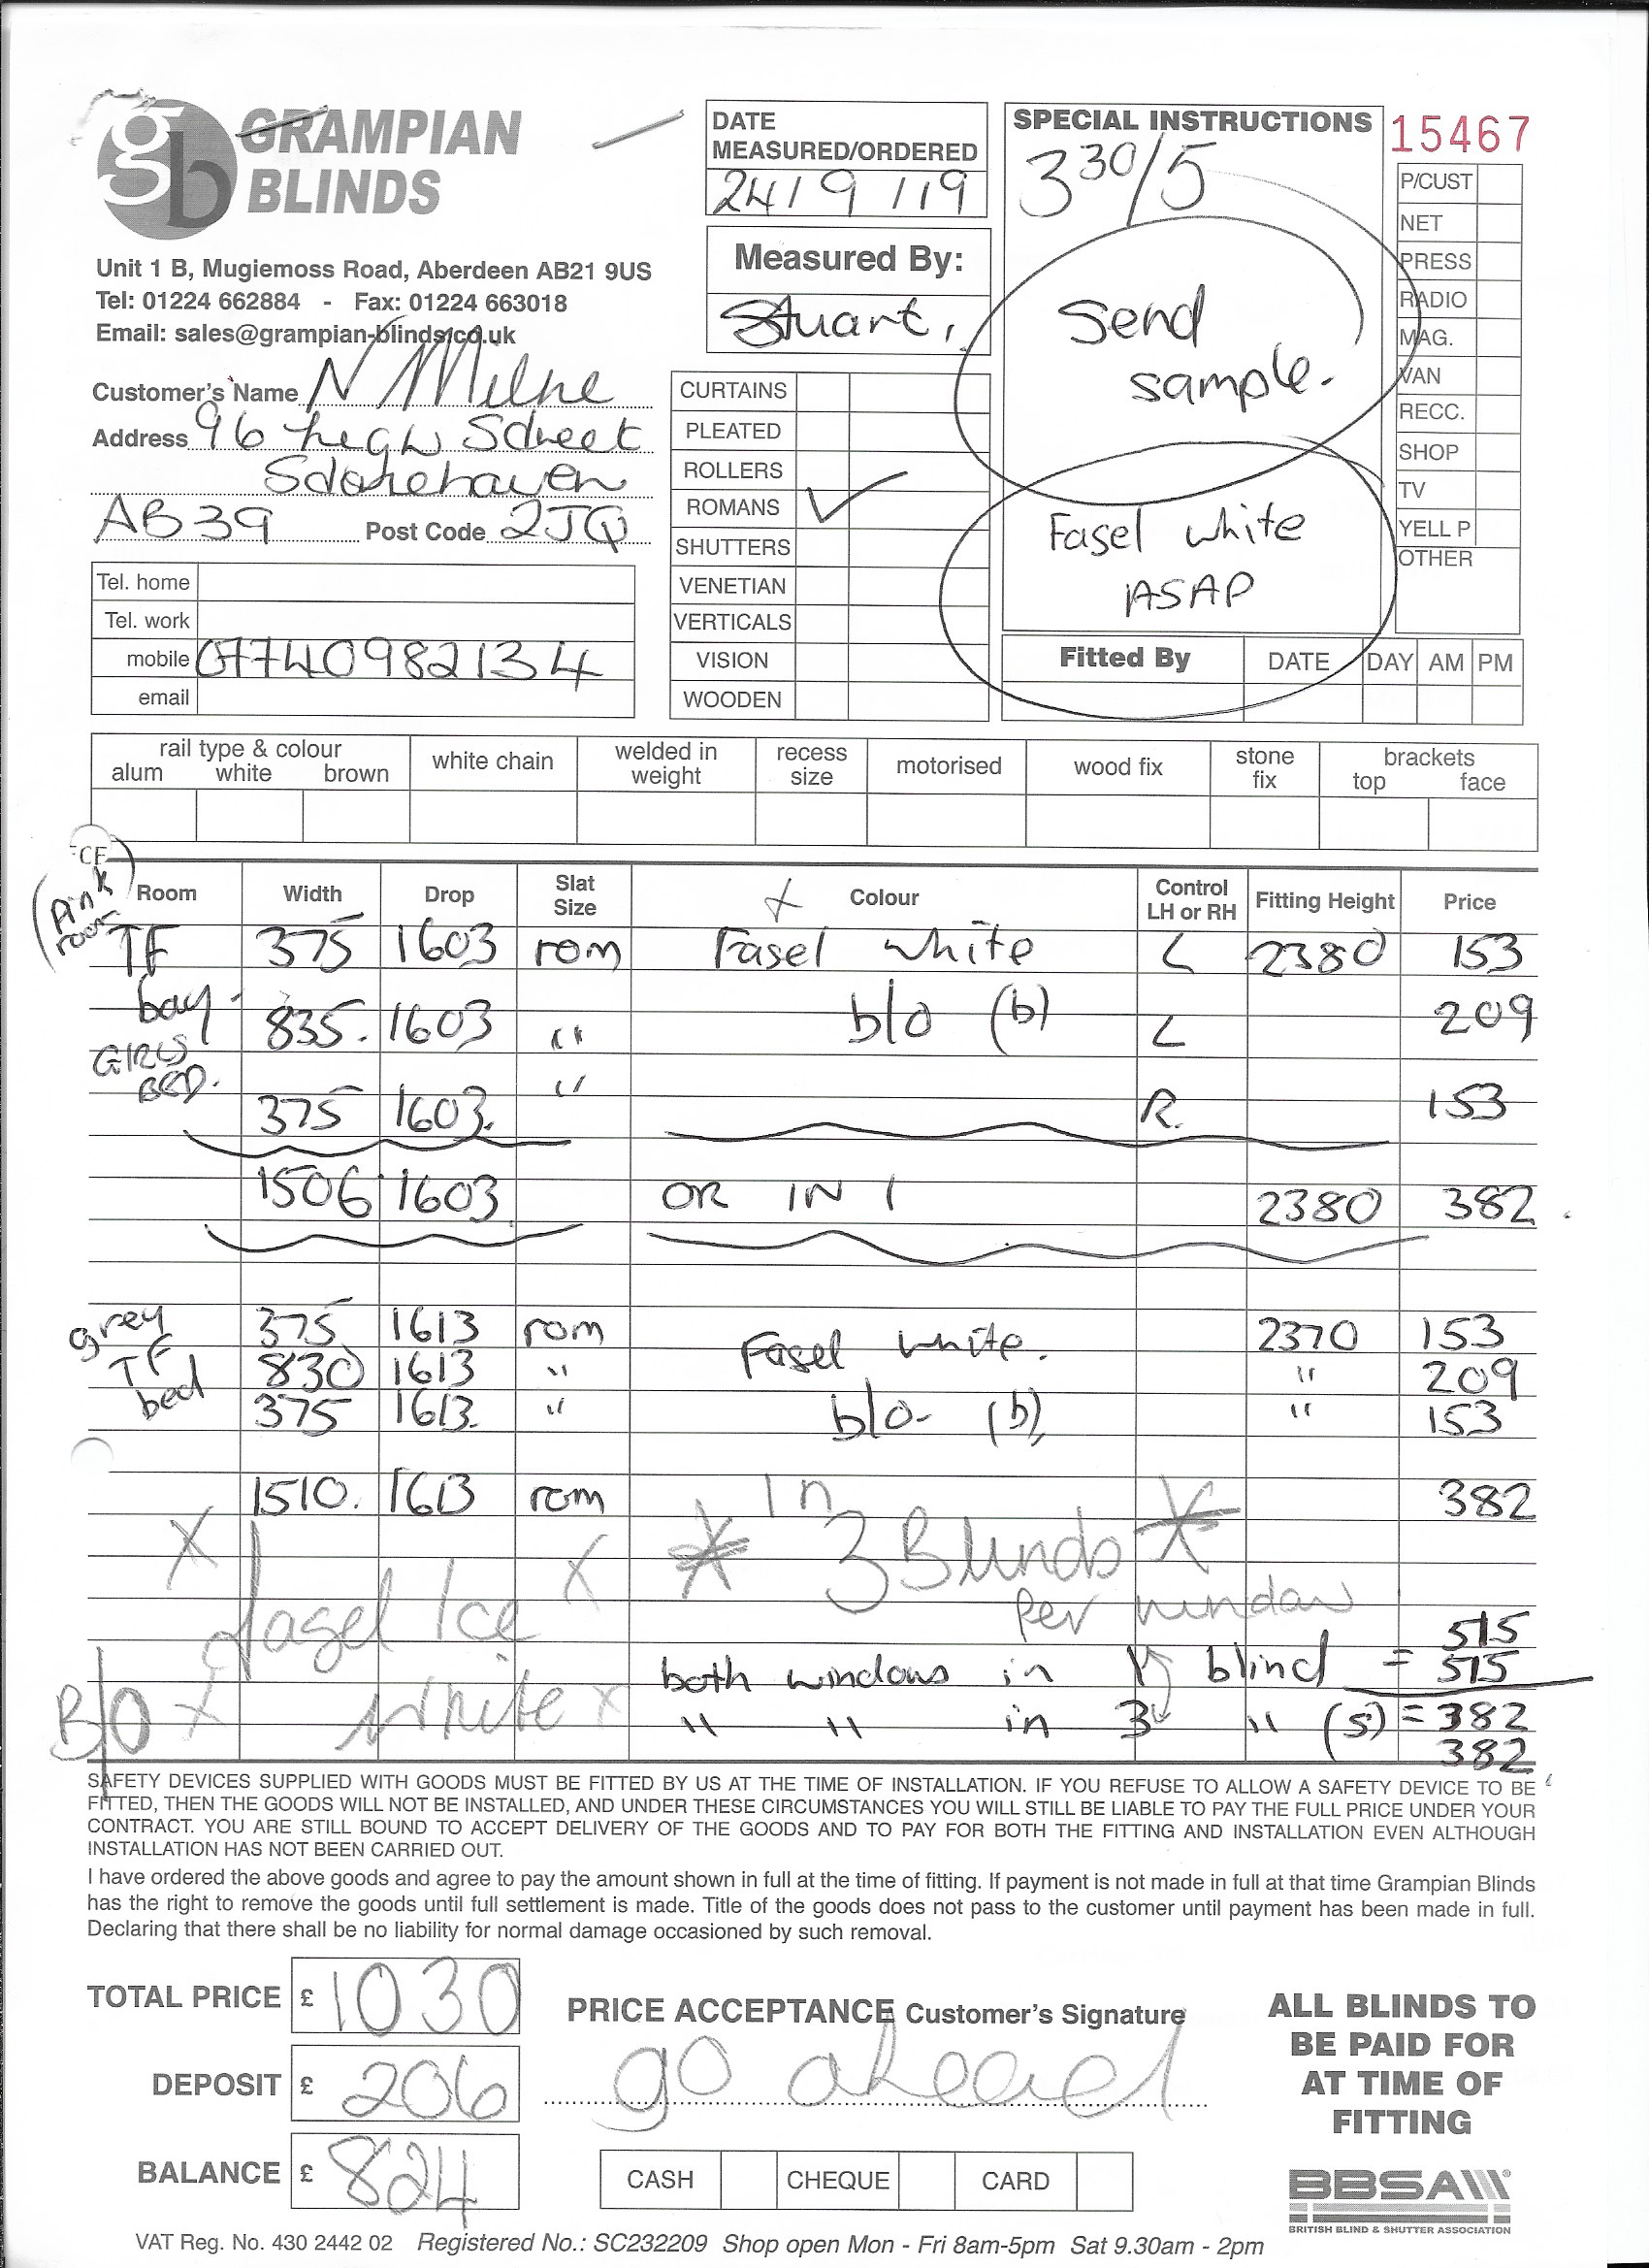 gb GRAMPIAN BLINDS
Unit 1 B, Mugiemoss Road, Aberdeen AB21 9US
Tel: 01224 662884 - Fax: 01224 663018
Email: sales@grampian-blinds.co.uk
Customer's Name N Milne
Address 96 High Street
Stonehaven
AB39 Post Code 2JQ
Tel. home
Tel. work
mobile 07740982134
email
DATE
MEASURED/ORDERED
24/9/19
Measured By:
Stuart.
CURTAINS
PLEATED
ROLLERS
ROMANS ✓
SHUTTERS
VENETIAN
VERTICALS
VISION
WOODEN
SPECIAL INSTRUCTIONS
3 30/5
Send
sample.
Fasel white
ASAP
Fitted By DATE DAY AM PM
15467
P/CUST
NET
PRESS
RADIO
MAG.
VAN
RECC.
SHOP
TV
YELL P
OTHER
rail type & colour white chain welded in weight recess size motorised wood fix stone fix brackets
alum white brown top face
(Pink room)
Room Width Drop Slat Size Colour Control LH or RH Fitting Height Price
TF 375 1603 rom Fasel white L 2380 153
bay 835. 1603 " b/o (b) L 209
GIRLS BED. 375 1603. " R. 153
1506 1603 OR IN 1 2380 382
grey 375 1613 rom Fasel white. 2370 153
TF 830 1613 " " 209
bed 375 1613. " b/o- (b) " 153
1510. 1613 rom 382
In
X X * 3 Blinds *
Fasel Ice Per window
515
both windows in 1 blind = 515
B/O x white x " " in 3 " (s) = 382
382
SAFETY DEVICES SUPPLIED WITH GOODS MUST BE FITTED BY US AT THE TIME OF INSTALLATION. IF YOU REFUSE TO ALLOW A SAFETY DEVICE TO BE
FITTED, THEN THE GOODS WILL NOT BE INSTALLED, AND UNDER THESE CIRCUMSTANCES YOU WILL STILL BE LIABLE TO PAY THE FULL PRICE UNDER YOUR
CONTRACT. YOU ARE STILL BOUND TO ACCEPT DELIVERY OF THE GOODS AND TO PAY FOR BOTH THE FITTING AND INSTALLATION EVEN ALTHOUGH
INSTALLATION HAS NOT BEEN CARRIED OUT.
I have ordered the above goods and agree to pay the amount shown in full at the time of fitting. If payment is not made in full at that time Grampian Blinds
has the right to remove the goods until full settlement is made. Title of the goods does not pass to the customer until payment has been made in full.
Declaring that there shall be no liability for normal damage occasioned by such removal.
TOTAL PRICE £ 1030
DEPOSIT £ 206
BALANCE £ 824
PRICE ACCEPTANCE Customer's Signature
go ahead
CASH CHEQUE CARD
ALL BLINDS TO
BE PAID FOR
AT TIME OF
FITTING
BBSA
BRITISH BLIND & SHUTTER ASSOCIATION
VAT Reg. No. 430 2442 02 Registered No.: SC232209 Shop open Mon - Fri 8am-5pm Sat 9.30am - 2pm